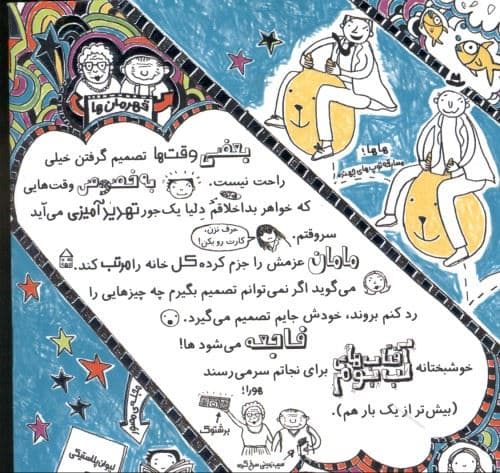 قهرمان‌ها
بعضی وقت‌ها تصمیم گرفتن خیلی
راحت نیست. به‌خصوص وقت‌هایی
که خواهر بداخلاقم دلیا یک‌جور تهدیدآمیزی می‌آید
سروقتم.
حرف نزن،
کارت رو بکن!
مامان عزمش را جزم کرده کل خانه را مرتب کند.
می‌گوید اگر نمی‌توانم تصمیم بگیرم چه چیزهایی را
رد کنم بروند، خودش جایم تصمیم می‌گیرد.
فاجعه می‌شود ها!
خوشبختانه آفتاب‌های لب بوم برای نجاتم سر می‌رسند
(بیش‌تر از یک بار هم).
هورا!
برشتوک
هاها!
مسابقه‌ی توپ‌های جهنده
لیوان پلاستیکی